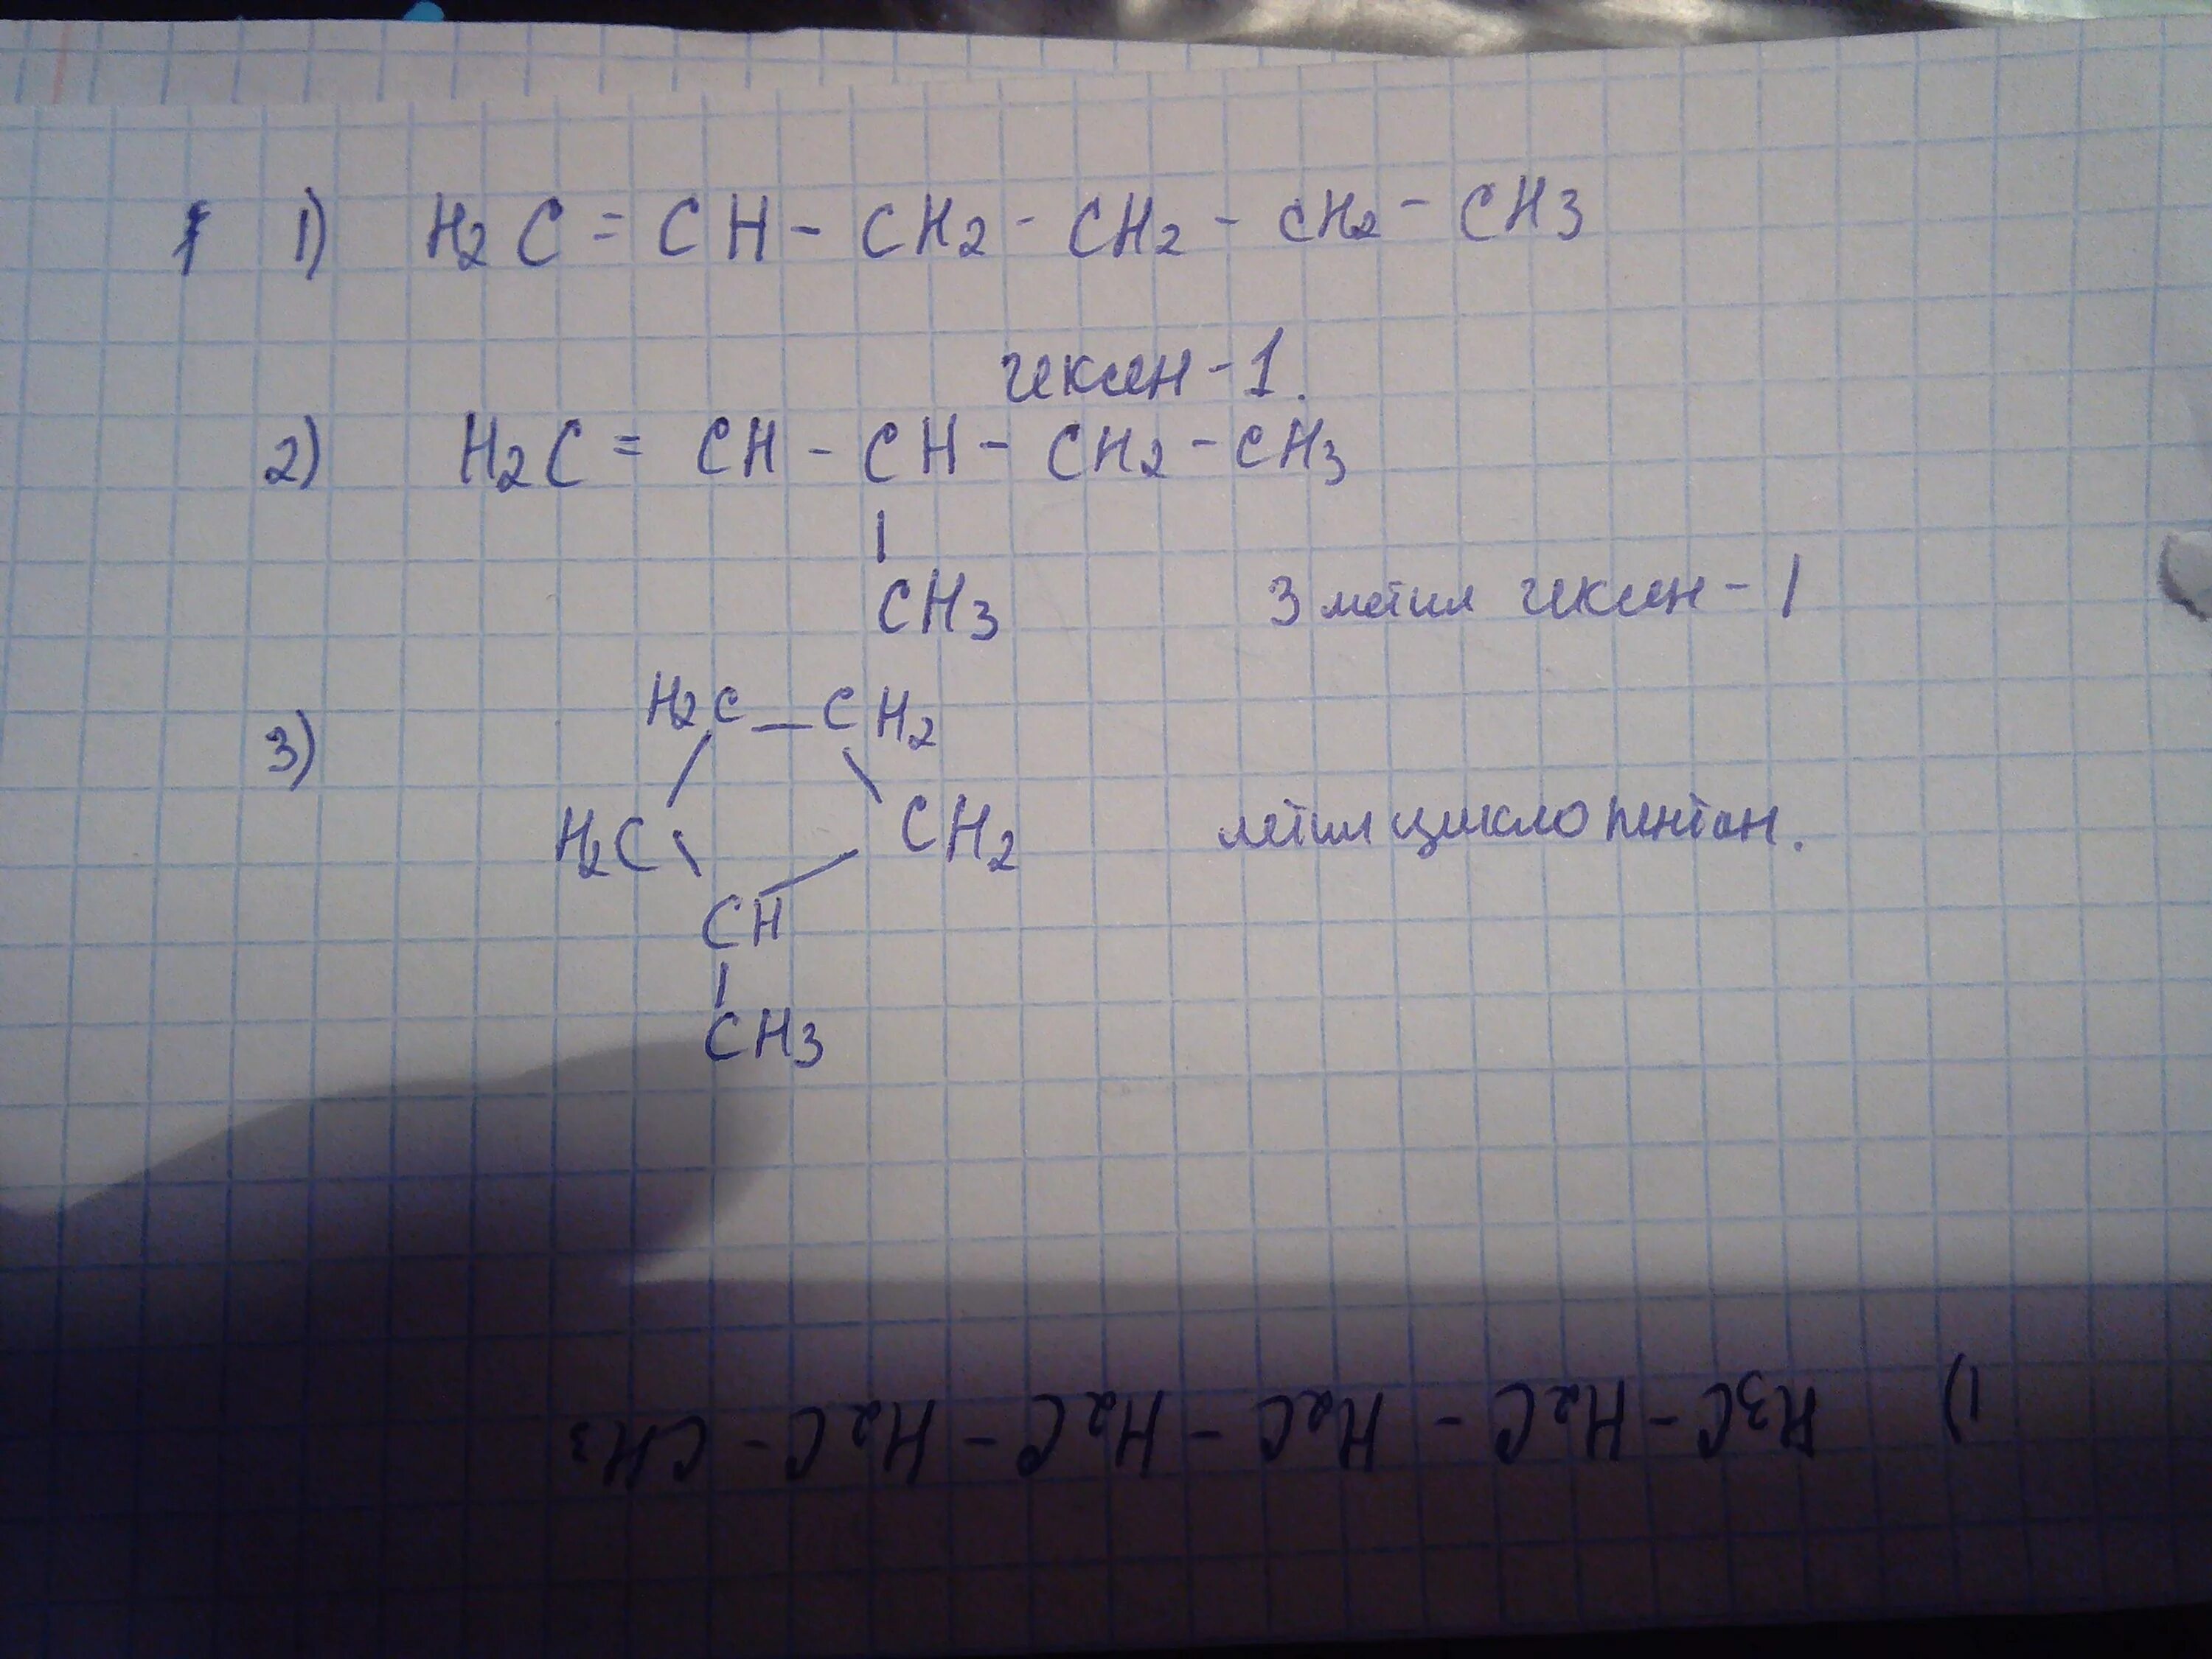 1) H2C = CH - CH2 - CH2 - CH2 - CH3
гексен-1.
2) H2C = CH - CH - CH2 - CH3
CH3
3 метил гексен-1
3)
H2C - CH2
H2C
CH2
метилциклопентан.
CH
CH3
1) H3C - H2C - H2C - H2C - H2C - CH3